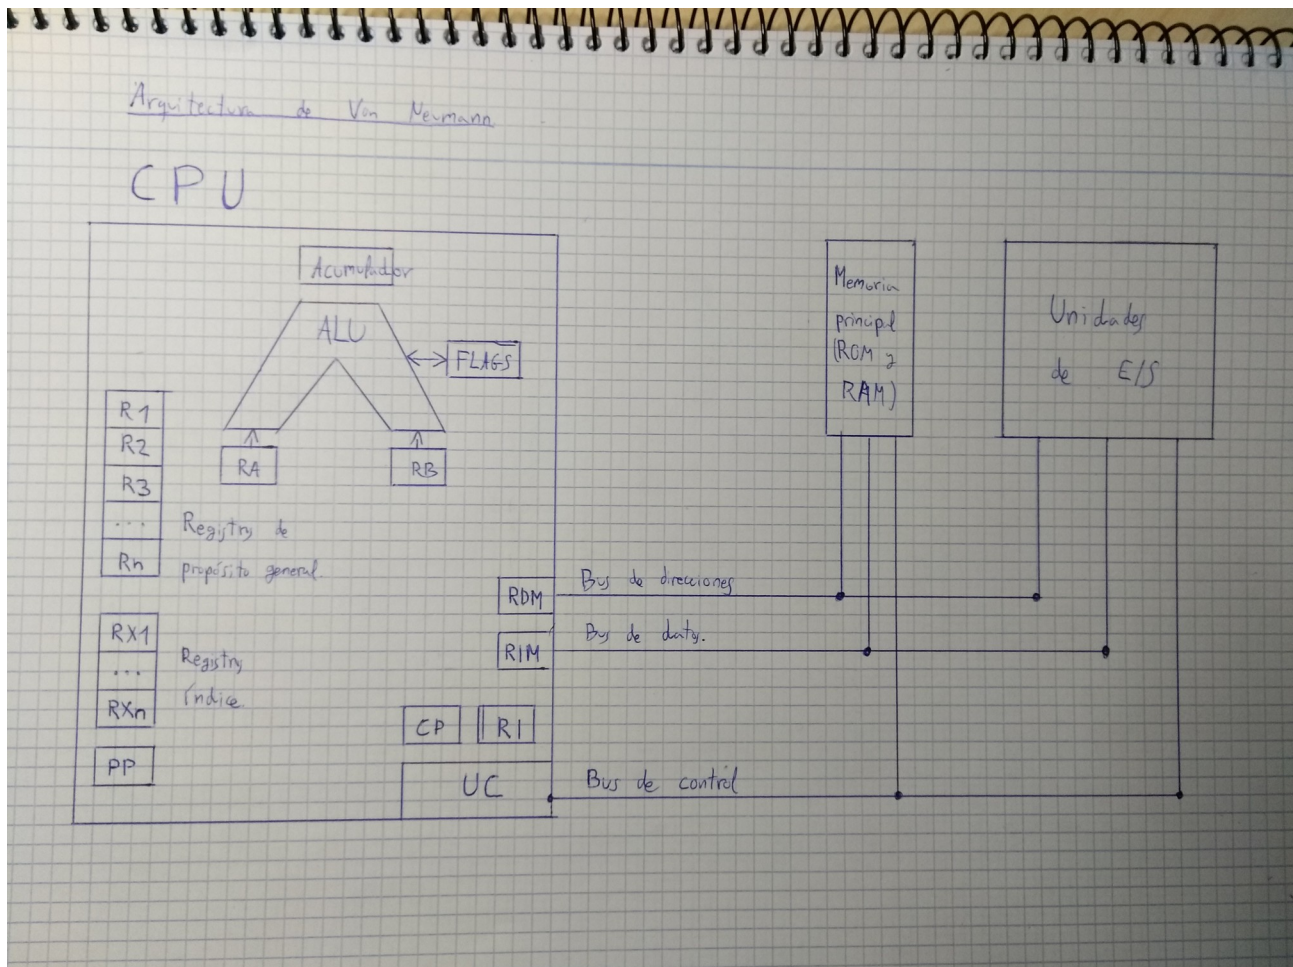 Arquitectura de Von Neumann
CPU
Acumulador
ALU
FLAGS
RA
RB
R1
R2
R3
...
Rn
Registros de
propósito general
RX1
...
RXn
Registros
índice
PP
RDM
RIM
CP
RI
UC
Bus de direcciones
Bus de datos.
Bus de control
Memoria
principal
(ROM y
RAM)
Unidades
de E/S